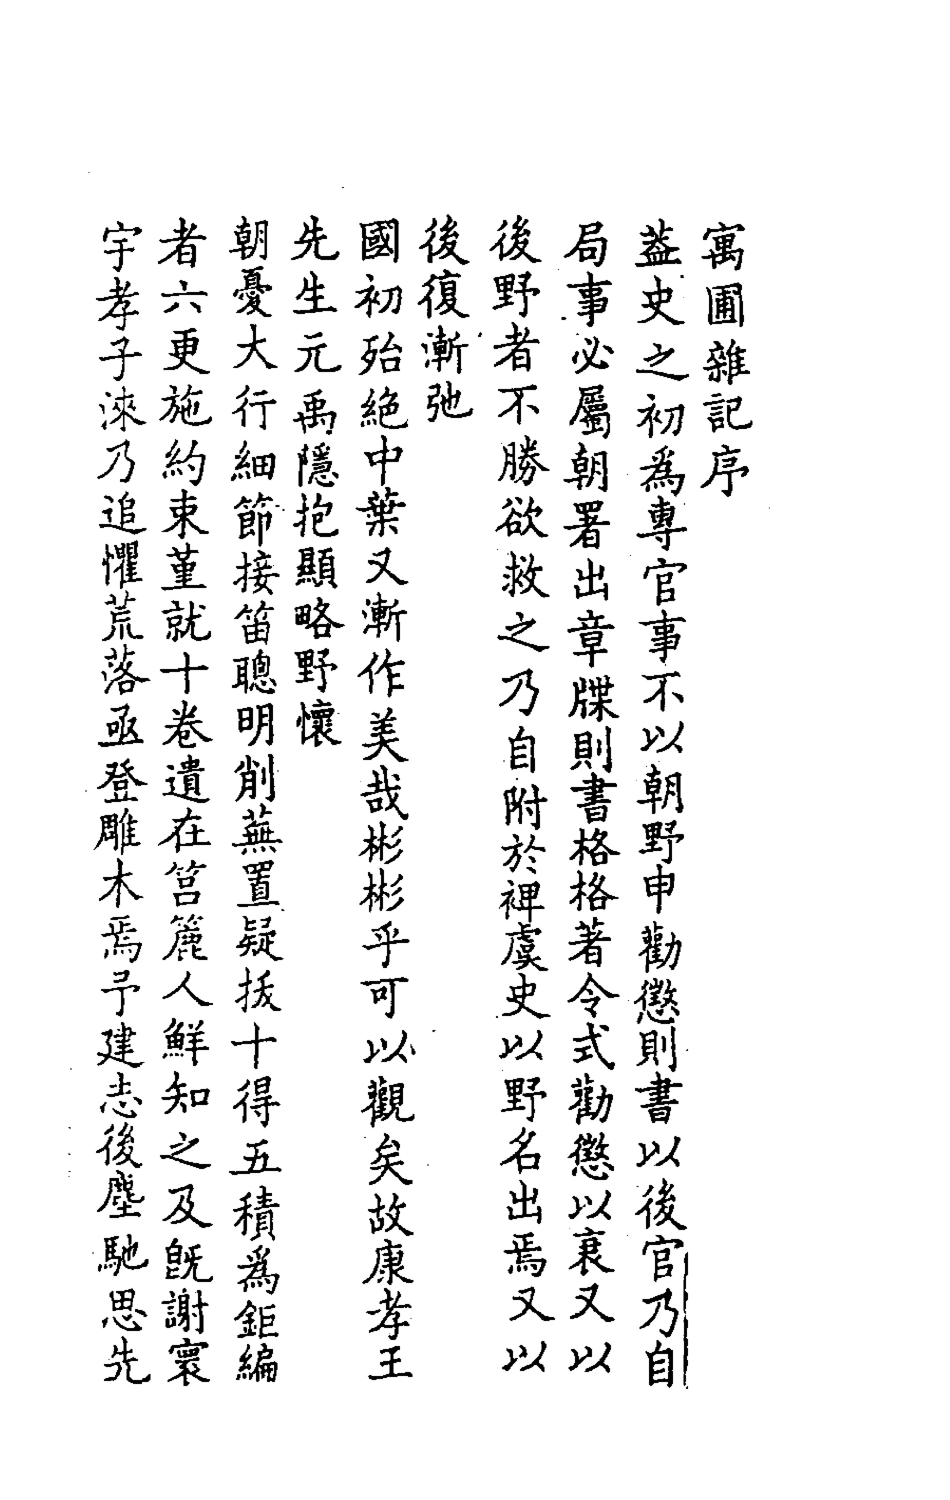 寓圃雜記序
葢史之初為專官事不以朝野申勸懲則書以後官乃自
局事必屬朝署出章牒則書格格著令式勸懲以衰又以
後野者不勝欲救之乃自附於裨虞史以野名出焉又以
後復漸弛
國初殆絶中葉又漸作美哉彬彬乎可以觀矣故康孝王
先生元禹隱抱顯略野懷
朝憂大行細節接笛聰明削蕪置疑拔十得五積為鉅編
者六更施約束堇就十卷遺在筥簏人鮮知之及旣謝寰
宇孝子淶乃追懼荒落亟登雕木焉予建志後塵馳思先